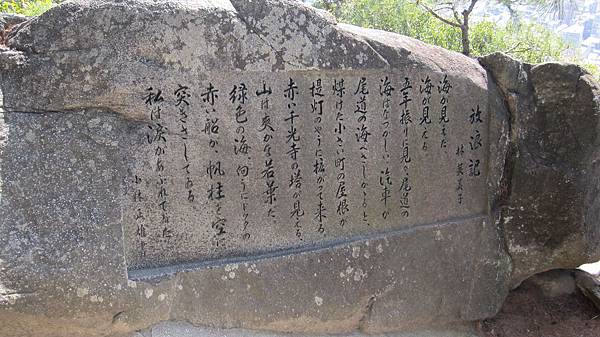 放浪記
林芙美子
海が見えた
海が見える
五年振りに見る尾道の
海はなつかしい、汽車が
尾道の海へさしかかると、
煤けた小さい町の屋根が
提灯のやうに拡がって来る
赤い千光寺の塔が見える、
山は爽かな若葉だ、
緑色の海、向うにドックの
赤い船が、帆柱を空に
突きさしてゐる
私は涙があふれてゐた
小林正雄書